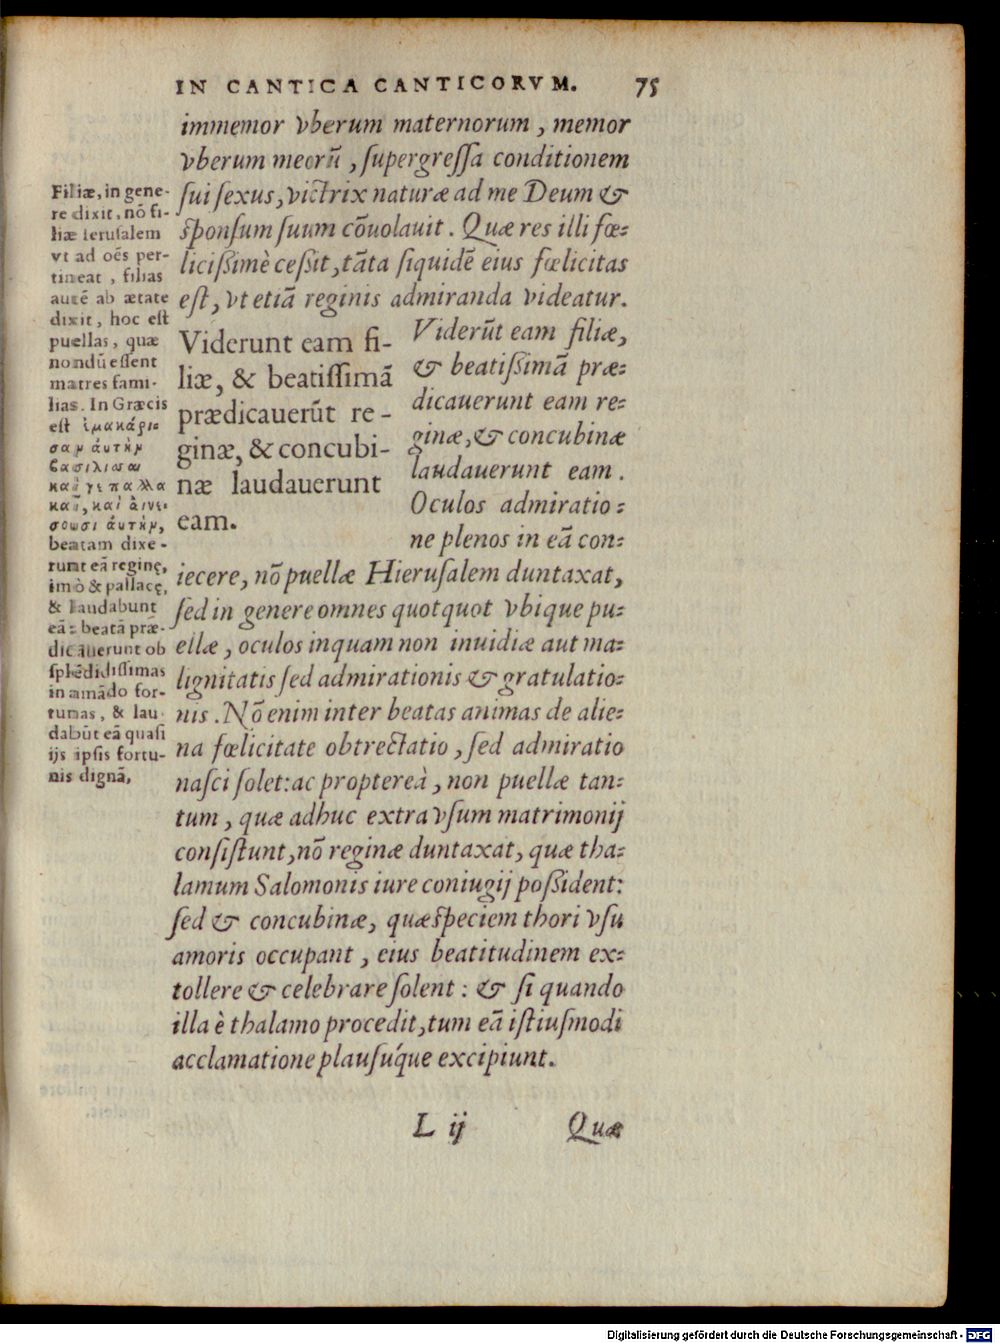 IN CANTICA CANTICORVM. 75
immemor vberum maternorum, memor
vberum meorũ, ſupergreſſa conditionem
ſui ſexus, victrix naturæ ad me Deum &
ſponſum ſuum cõuolauit. Quæ res illi fœ-
liciſsimè ceſsit, tãta ſiquidẽ eius fœlicitas
eſt, vt etiã reginis admiranda videatur.
Filiæ, in gene-
re dixit, nõ fi-
liæ Ieruſalem
vt ad oẽs per-
tineat, filias
autẽ ab ætate
dixit, hoc eſt
puellas, quæ
nondũ eſſent
matres fami-
lias. In Græcis
eſt
beatam dixe-
runt eã reginę,
imò & pallacę,
& laudabunt
eã: beatã præ-
dicauerunt ob
ſplẽdidiſſimas
in amãdo for-
tunas, & lau-
dabũt eã quaſi
ijs ipſis fortu-
nis dignã,
Viderunt eam fi-
liæ, & beatiſſimã
prædicauerũt re-
ginæ, & concubi-
næ laudauerunt
eam.
Viderũt eam filiæ,
& beatiſsimã præ-
dicauerunt eam re-
ginæ, & concubinæ
laudauerunt eam.
Oculos admiratio-
ne plenos in eã con-
iecere, nõ puellæ Hieruſalem duntaxat,
ſed in genere omnes quotquot vbique pu-
ellæ, oculos inquam non inuidiæ aut ma-
lignitatis ſed admirationis & gratulatio-
nis. Nõ enim inter beatas animas de alie-
na fœlicitate obtrectatio, ſed admiratio
naſci ſolet: ac proptereà, non puellæ tan-
tum, quæ adhuc extra vſum matrimonij
conſiſtunt, nõ reginæ duntaxat, quæ tha-
lamum Salomonis iure coniugij poſsident:
ſed & concubinæ, quæ ſpeciem thori vſu
amoris occupant, eius beatitudinem ex-
tollere & celebrare ſolent: & ſi quando
illa è thalamo procedit, tum eã iſtiuſmodi
acclamatione plauſúque excipiunt.
L ij Quæ
Digitalisierung gefördert durch die Deutsche Forschungsgemeinschaft - DFG